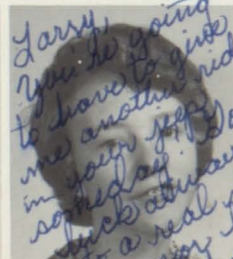 Larry,
You're going
to have to give
me another rid
in your jeep
someday. Go
luck always
to a real